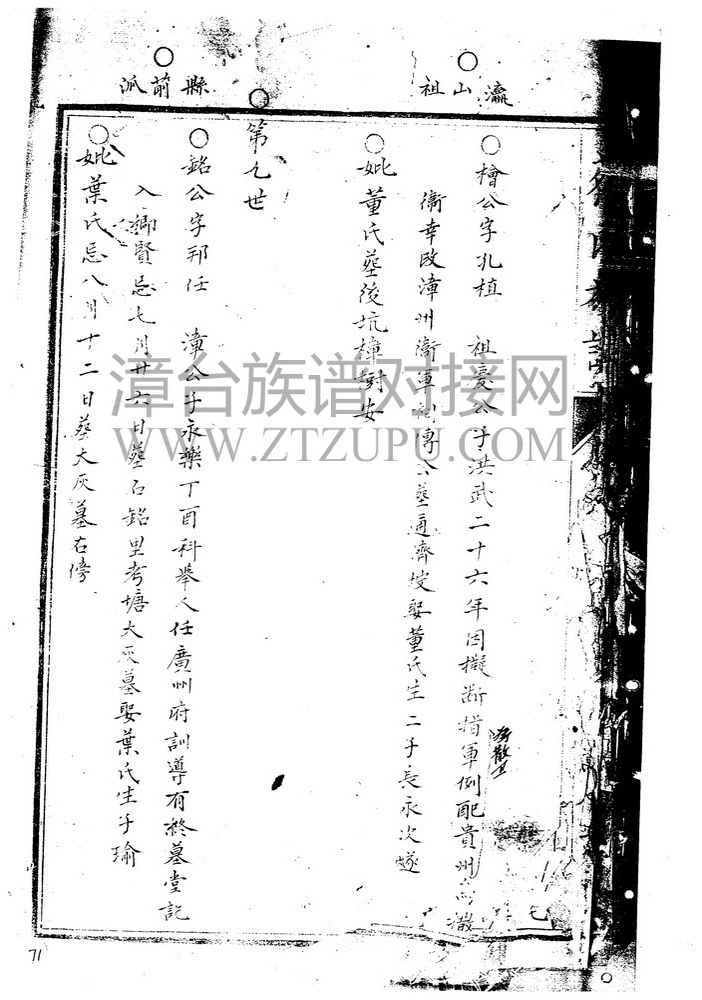 瀛山祖
縣前派
檜公字孔植 祖憂公子洪武二十六年因擬斷指軍例配貴州
衛幸改漳州衛軍 傳公葬通濟 娶董氏生二子長永次遂
妣董氏葬後坑樟樹安
第九世
銘公字邦任 漳公子永樂丁酉科舉人任廣州府訓導有終墓堂記
入鄉賢忌七月廿六日葬石銘里考塘大灰墓娶葉氏生子瑜
妣葉氏忌八月十二日葬大灰墓右傍
71
漳台族谱对接网
WWW.ZTZUPU.COM